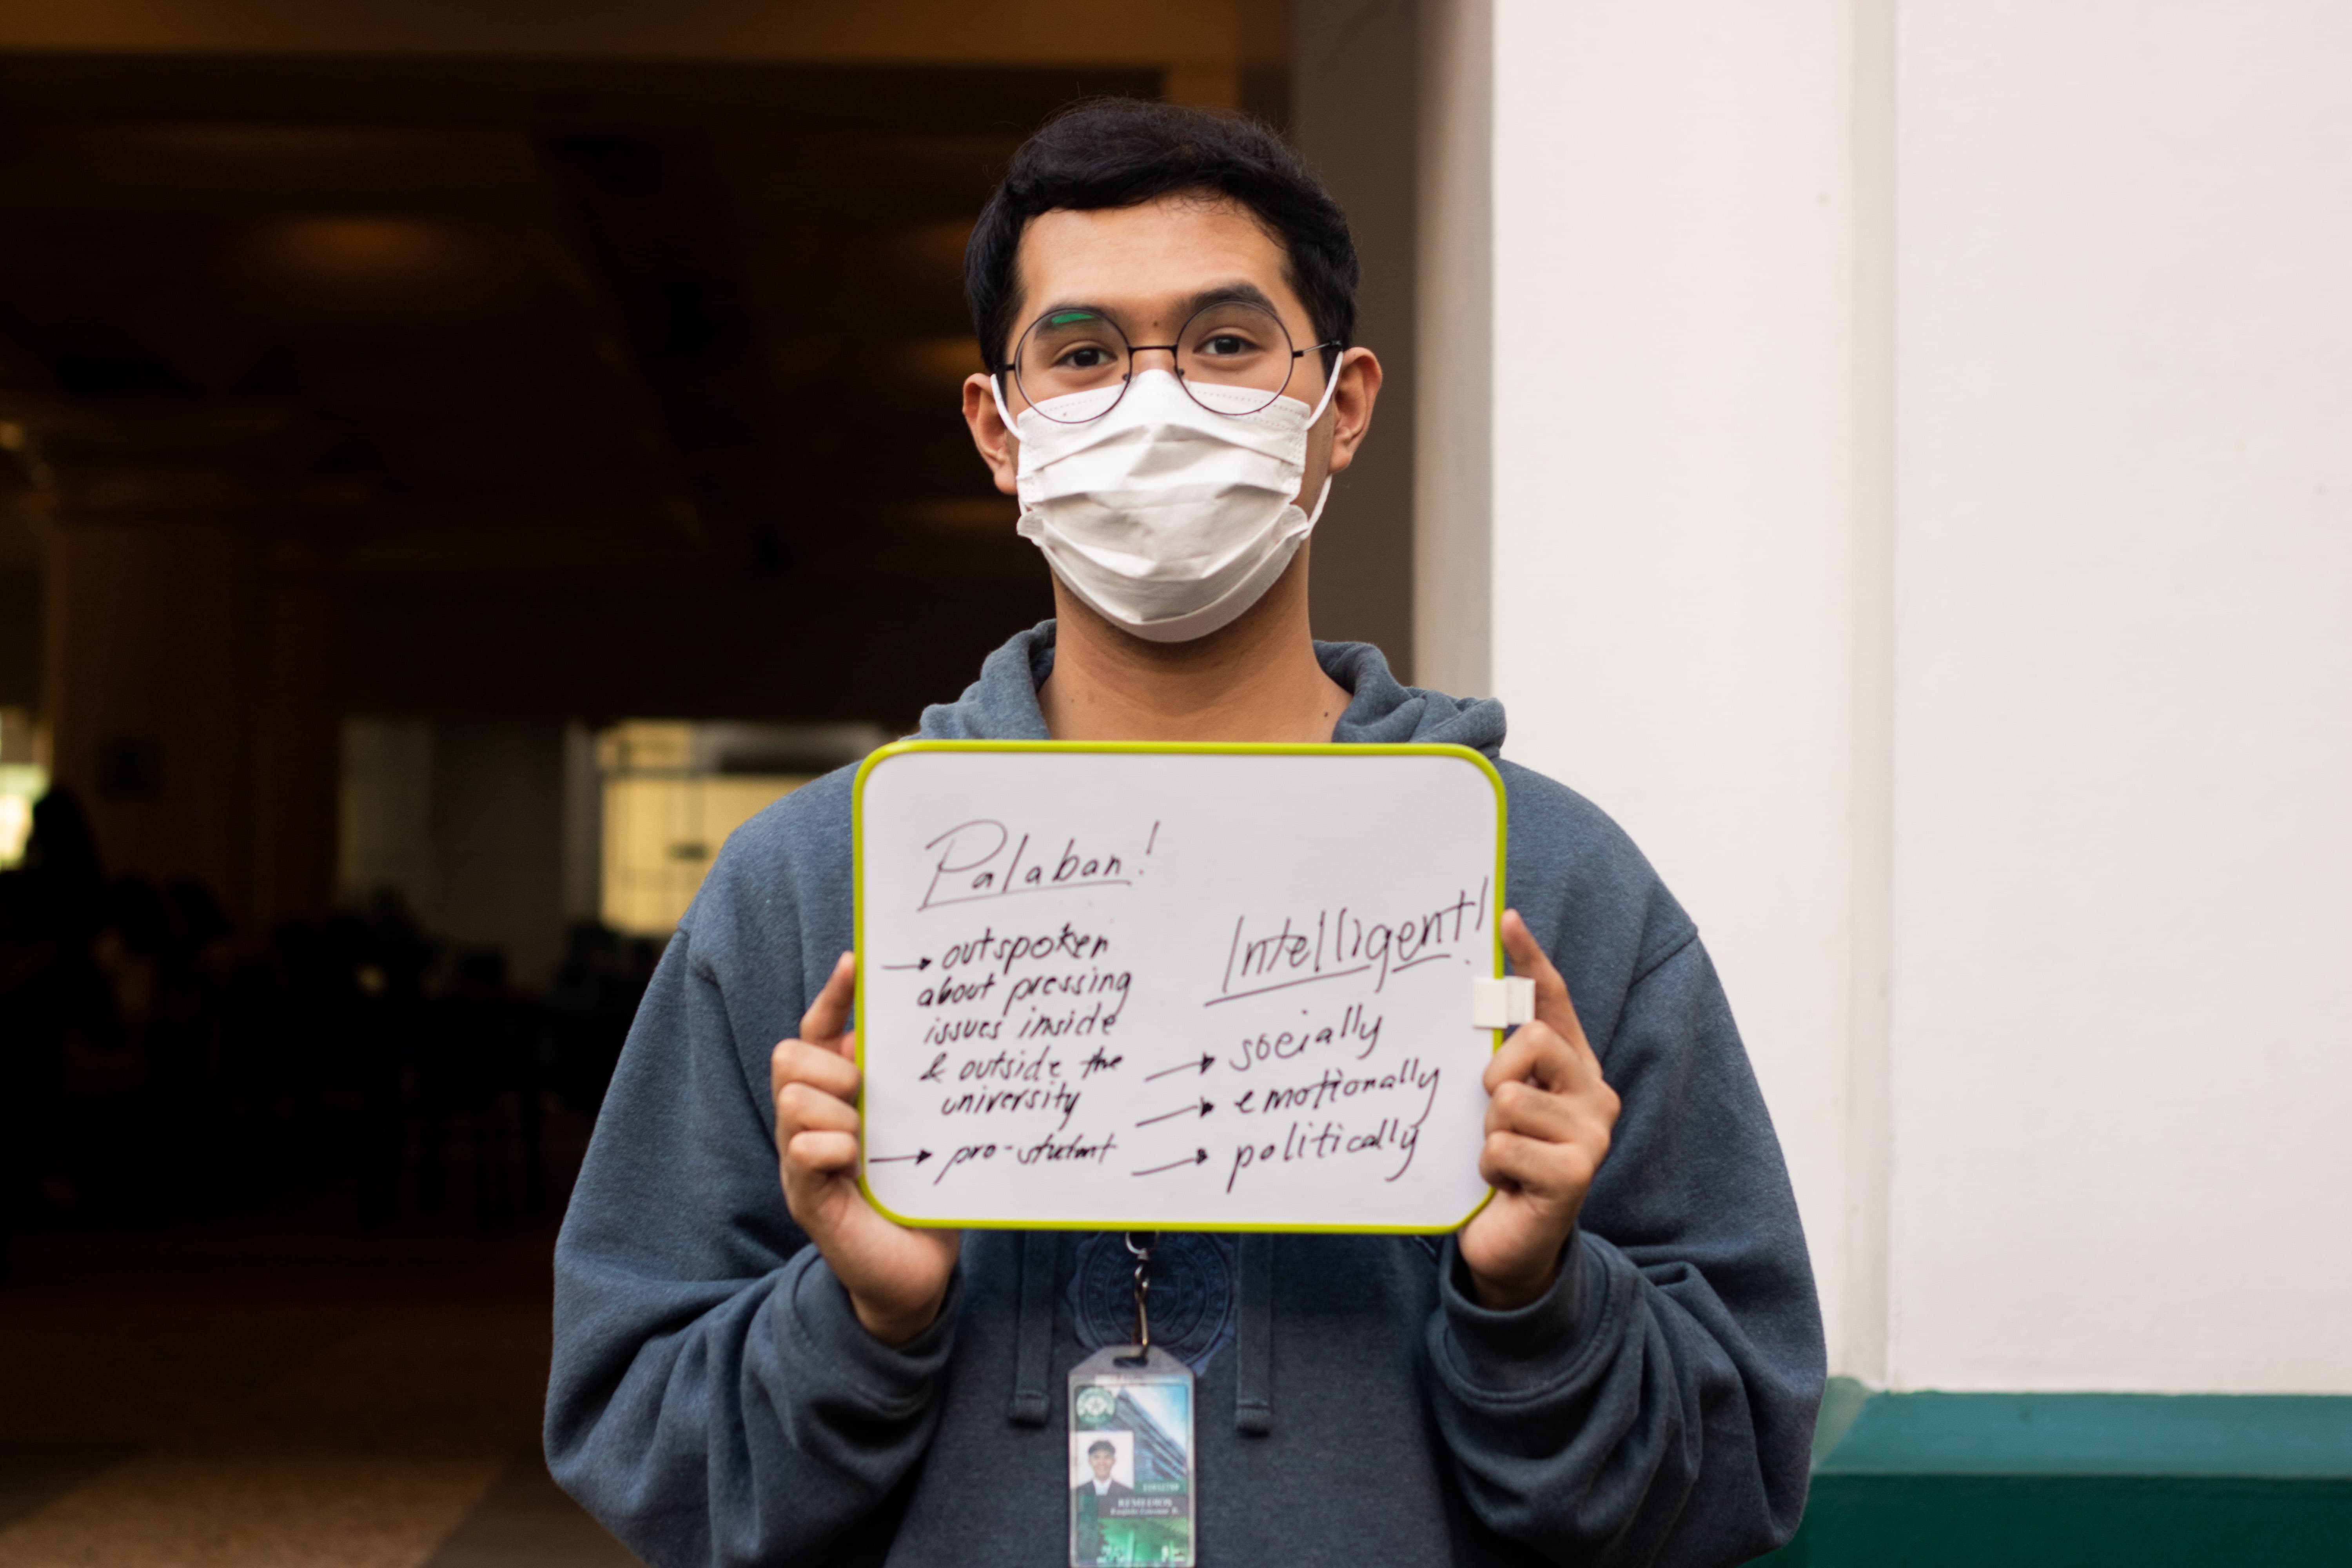 Palaban!
→ outspoken
about pressing
issues inside
& outside the
university
→ pro-student
Intelligent!
→ socially
→ emotionally
→ politically
REMEDIOS